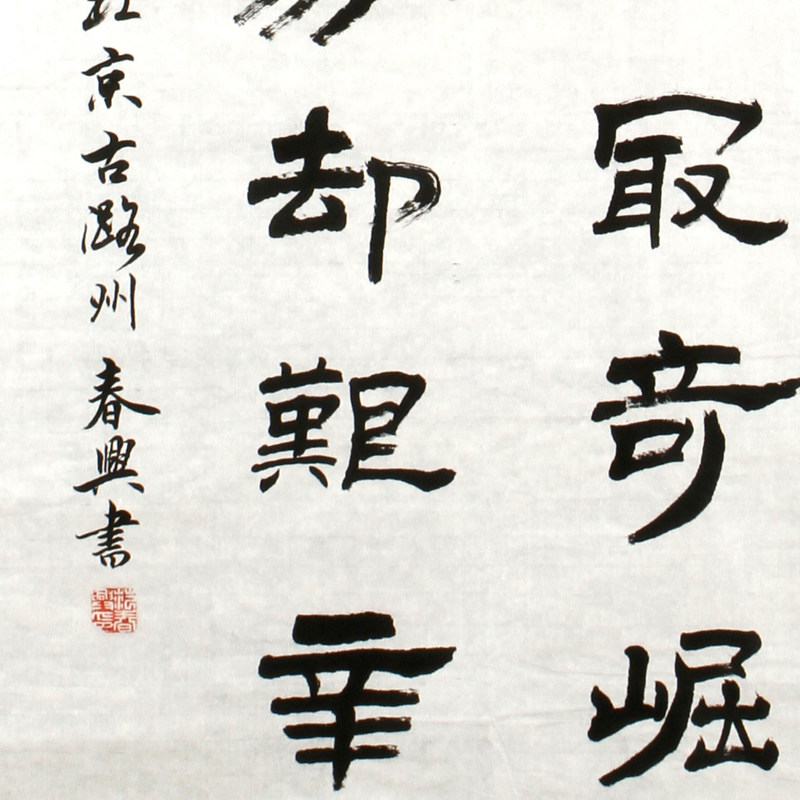 冣奇崛
却艱辛
京古潞州 春興書